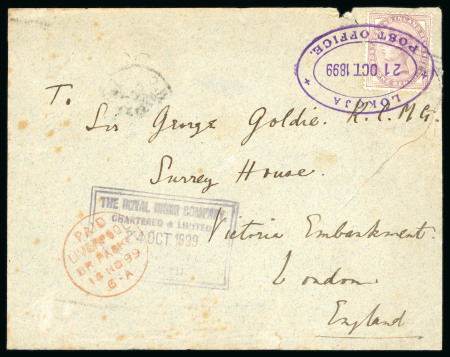 POST OFFICE.
21 OCT 1899
LOKOJA
To
Sir George Goldie. K.C.M.G.
Surrey House.
Victoria Embankment.
London
England
THE ROYAL NIGER COMPANY
CHARTERED & LIMITED
24 OCT 1899
PAID
LIVERPOOL
BR. PACKET
13 NO 99